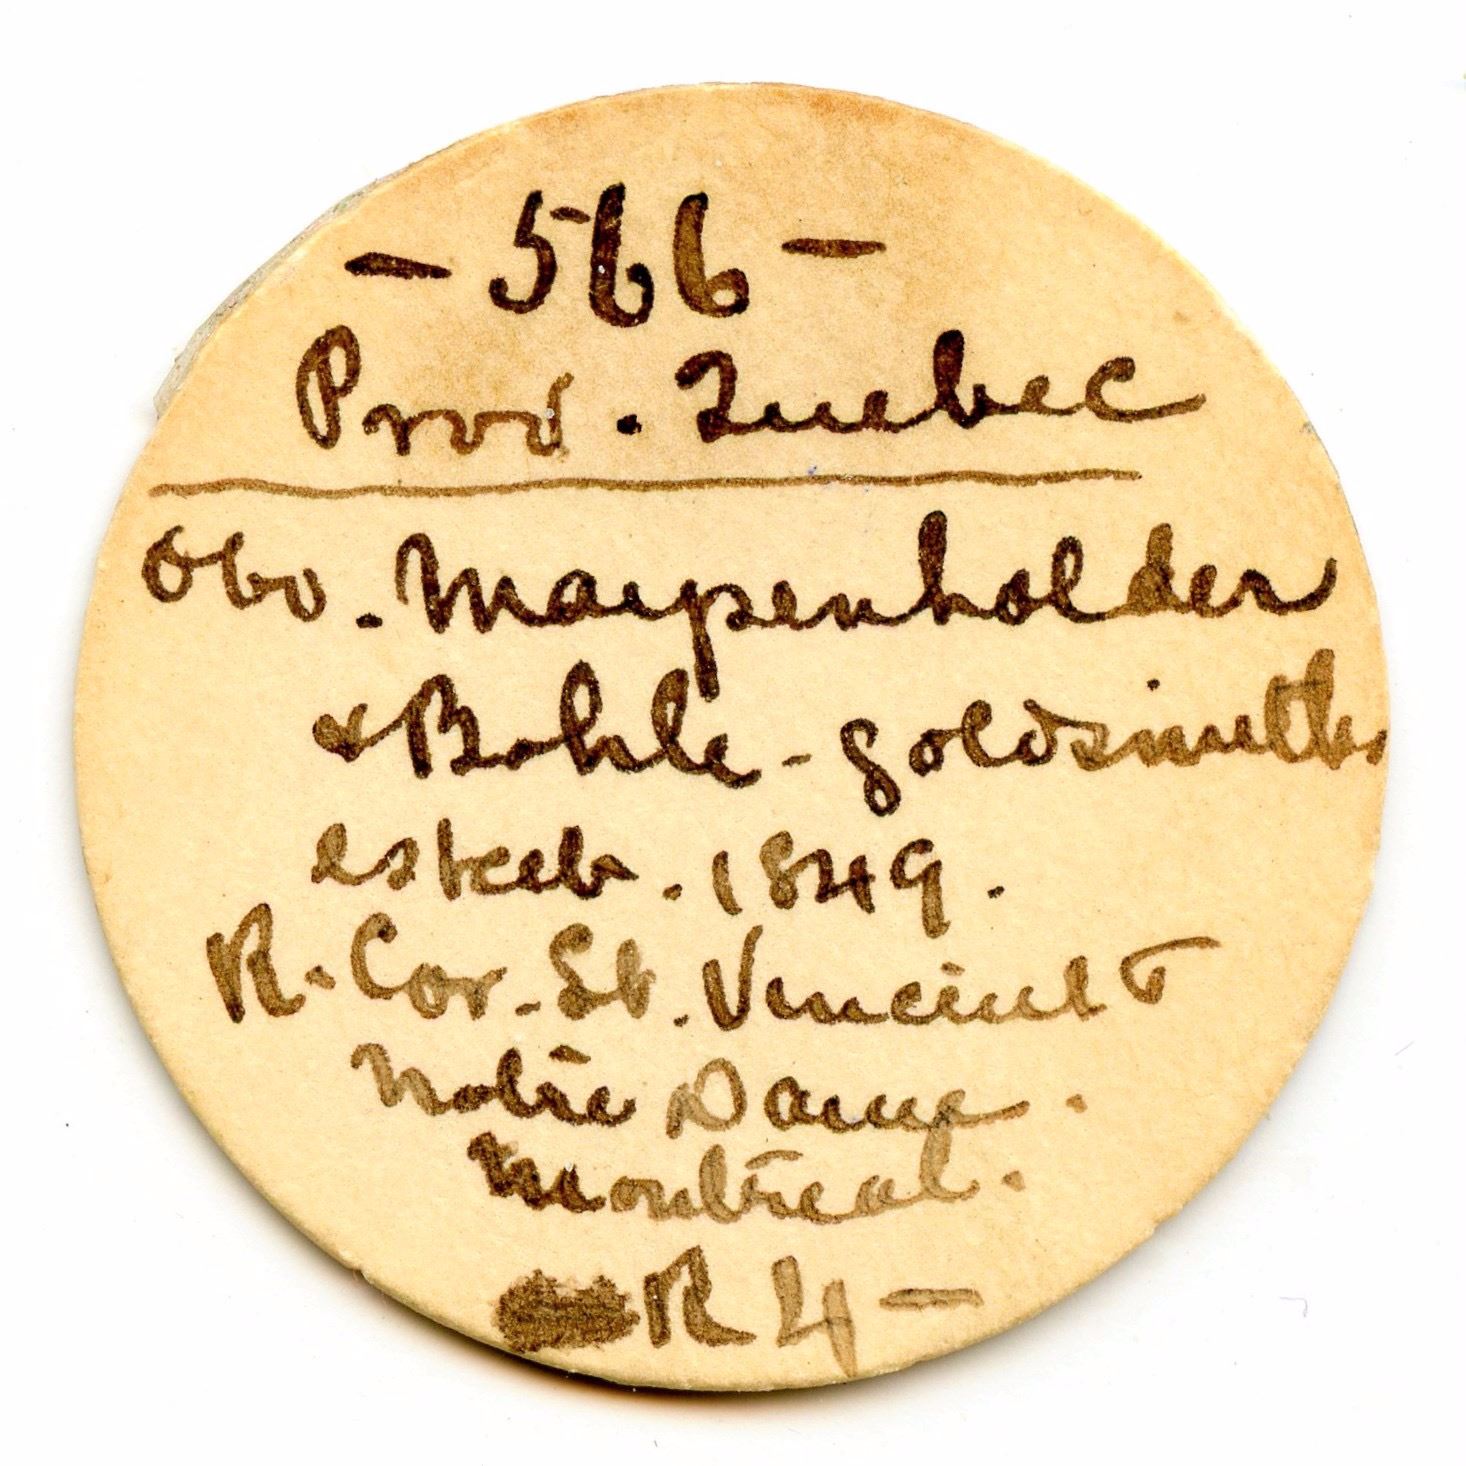 - 566 -
Prov. Quebec
Obv. Maysenholder
& Bohle - goldsmiths
estab. 1849.
R. Cor. St. Vincent &
Notre Dame.
Montreal.
R4 -